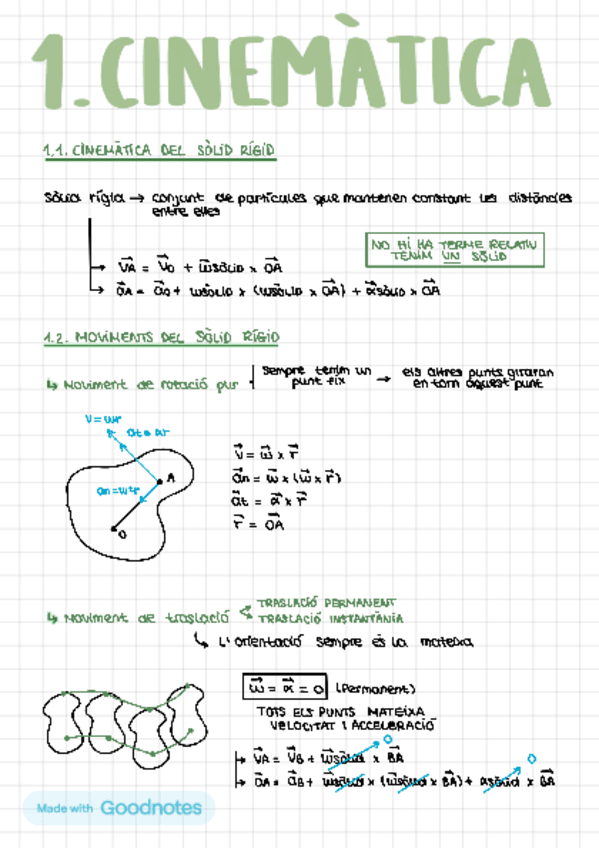 1.CINEMÀTICA
1.1. CINEMÀTICA DEL SÒLID RÍGID
Sòlid rígid → conjunt de partícules que mantenen constant les distàncies
entre elles
NO HI HA TERME RELATIU
TENIM UN SÒLID
→ V⃗A = V⃗O + ω⃗sòlid × O⃗A
→ a⃗A = a⃗O + ωsòlid × (ωsòlid × O⃗A) + α⃗sòlid × O⃗A
1.2. MOVIMENTS DEL SÒLID RÍGID
↳ Moviment de rotació pur
sempre tenim un
punt fix
→ els altres punts giraran
en torn aquest punt
V=ωr
at=αr
an=ω²r
A
O
v⃗ = ω⃗ × r⃗
a⃗n = ω⃗ × (ω⃗ × r⃗)
a⃗t = α⃗ × r⃗
r⃗ = O⃗A
↳ Moviment de traslació
TRASLACIÓ PERMANENT
TRASLACIÓ INSTANTÀNIA
↳ L'orientació sempre és la mateixa
ω⃗ = α⃗ = 0 (Permanent)
TOTS ELS PUNTS MATEIXA
VELOCITAT I ACCELERACIÓ
→ V⃗A = V⃗B + ω⃗sòlid × B⃗A 0
→ a⃗A = a⃗B + ωsòlid × (ωsòlid × B⃗A) + αsòlid × B⃗A 0
Made with Goodnotes